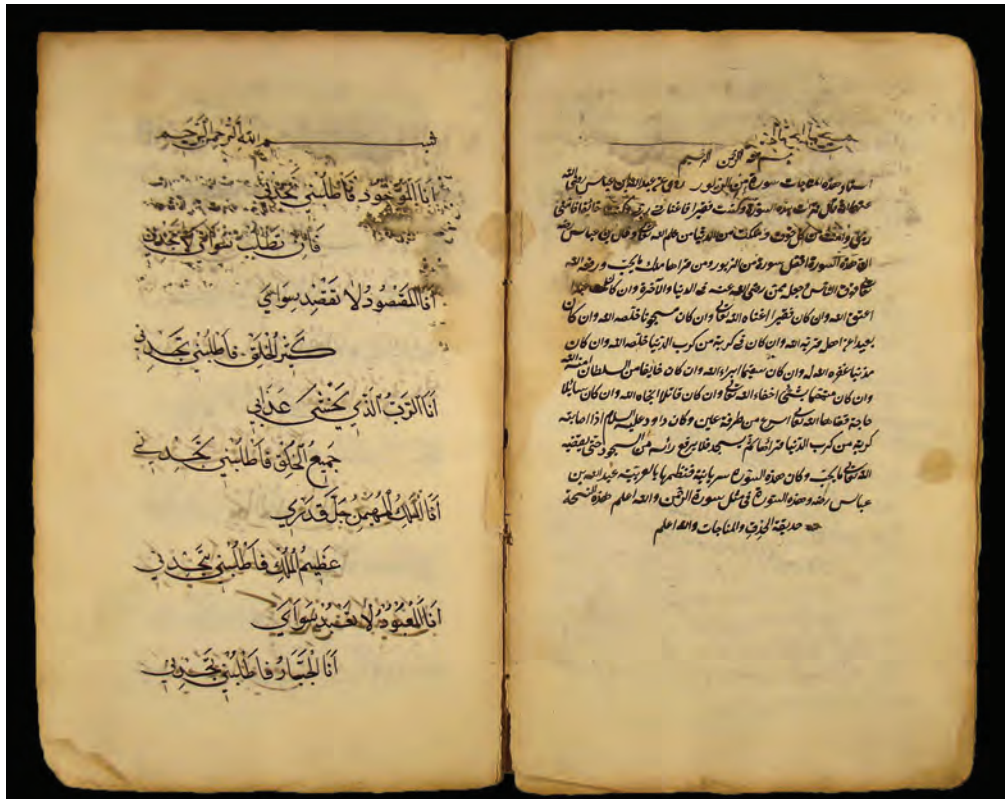 بسم الله الرحمن الرحيم
اسناد هذه المناجات سورة من الزبور روى عن عبدالله بن عباس رضى الله
عنهما انه قال قرات هذه السورة وكنت فقيرا فاغنانى ربى وكنت خائفا فامننى
ربى وامنت من كل خوف من الدنيا من حلم الله تعالى وقال بن عباس رضى الله
ان هذه السورة افضل سورة من الزبور ومن قراها ملك ما يحب ورفعه الله
تعالى فوق الناس وجعل ممن رضى الله عنه فى الدنيا والاخرة وان كان عبدا
اعتق الله وان كان فقيرا اغناه الله تعالى وان كان مسجونا خلصه الله وان كان
بعيدا عن اهل قربه الله وان كان فى كربة من كرب الدنيا خلصه الله وان كان
مذنبا غفره الله له وان كان سقيما ابراءه الله وان كان خايفا من السلطان امنه الله
وان كان بشئى اخفاءه الله تعالى وان كان قاتلا انجاه الله وان كان سايلا
حاجة قضاها الله تعالى اسرع من طرفة عين وكان داود عليه السلام اذا اصابته
كربة من كرب الدنيا قراها ثم يسجد فلا يرفع راسه من السجود حتى يقضيه
الله تعالى ما يحب وكان هذه السورة سريانية فنظمها بالعربية عبدالله بن
عباس رضه وهذه السورة فى مثل سورة الرحمن والله اعلم هذه النسخة
حديقة والمناجات والله اعلم
بسم الله الرحمن الرحيم
اَنَا الْمَوْجُودُ فَاَطْلُبْنِي تَجِدْنِي
فَاِنْ تَطْلُبْ سِوَائِي لَا تَجِدْنِي
اَنَا الْمَقْصُودُ لَا تَقْصِدْ سِوَايَ
كَثِيرُ الْخَلْقِ فَاَطْلُبْنِي تَجِدْنِي
اَنَا الرَّبُّ الَّذِي يَخْشَى عَذَابِي
جَمِيعُ الْخَلْقِ فَاَطْلُبْنِي تَجِدْنِي
اَنَا الْمَلِكُ الْمُهَيْمِنُ جَلَّ قَدْرِي
عَظِيمُ الْمُلْكِ فَاَطْلُبْنِي تَجِدْنِي
اَنَا الْمَعْبُودُ لَا تَعْبُدْ سِوَايَ
اَنَا الْجَبَّارُ فَاَطْلُبْنِي تَجِدْنِي